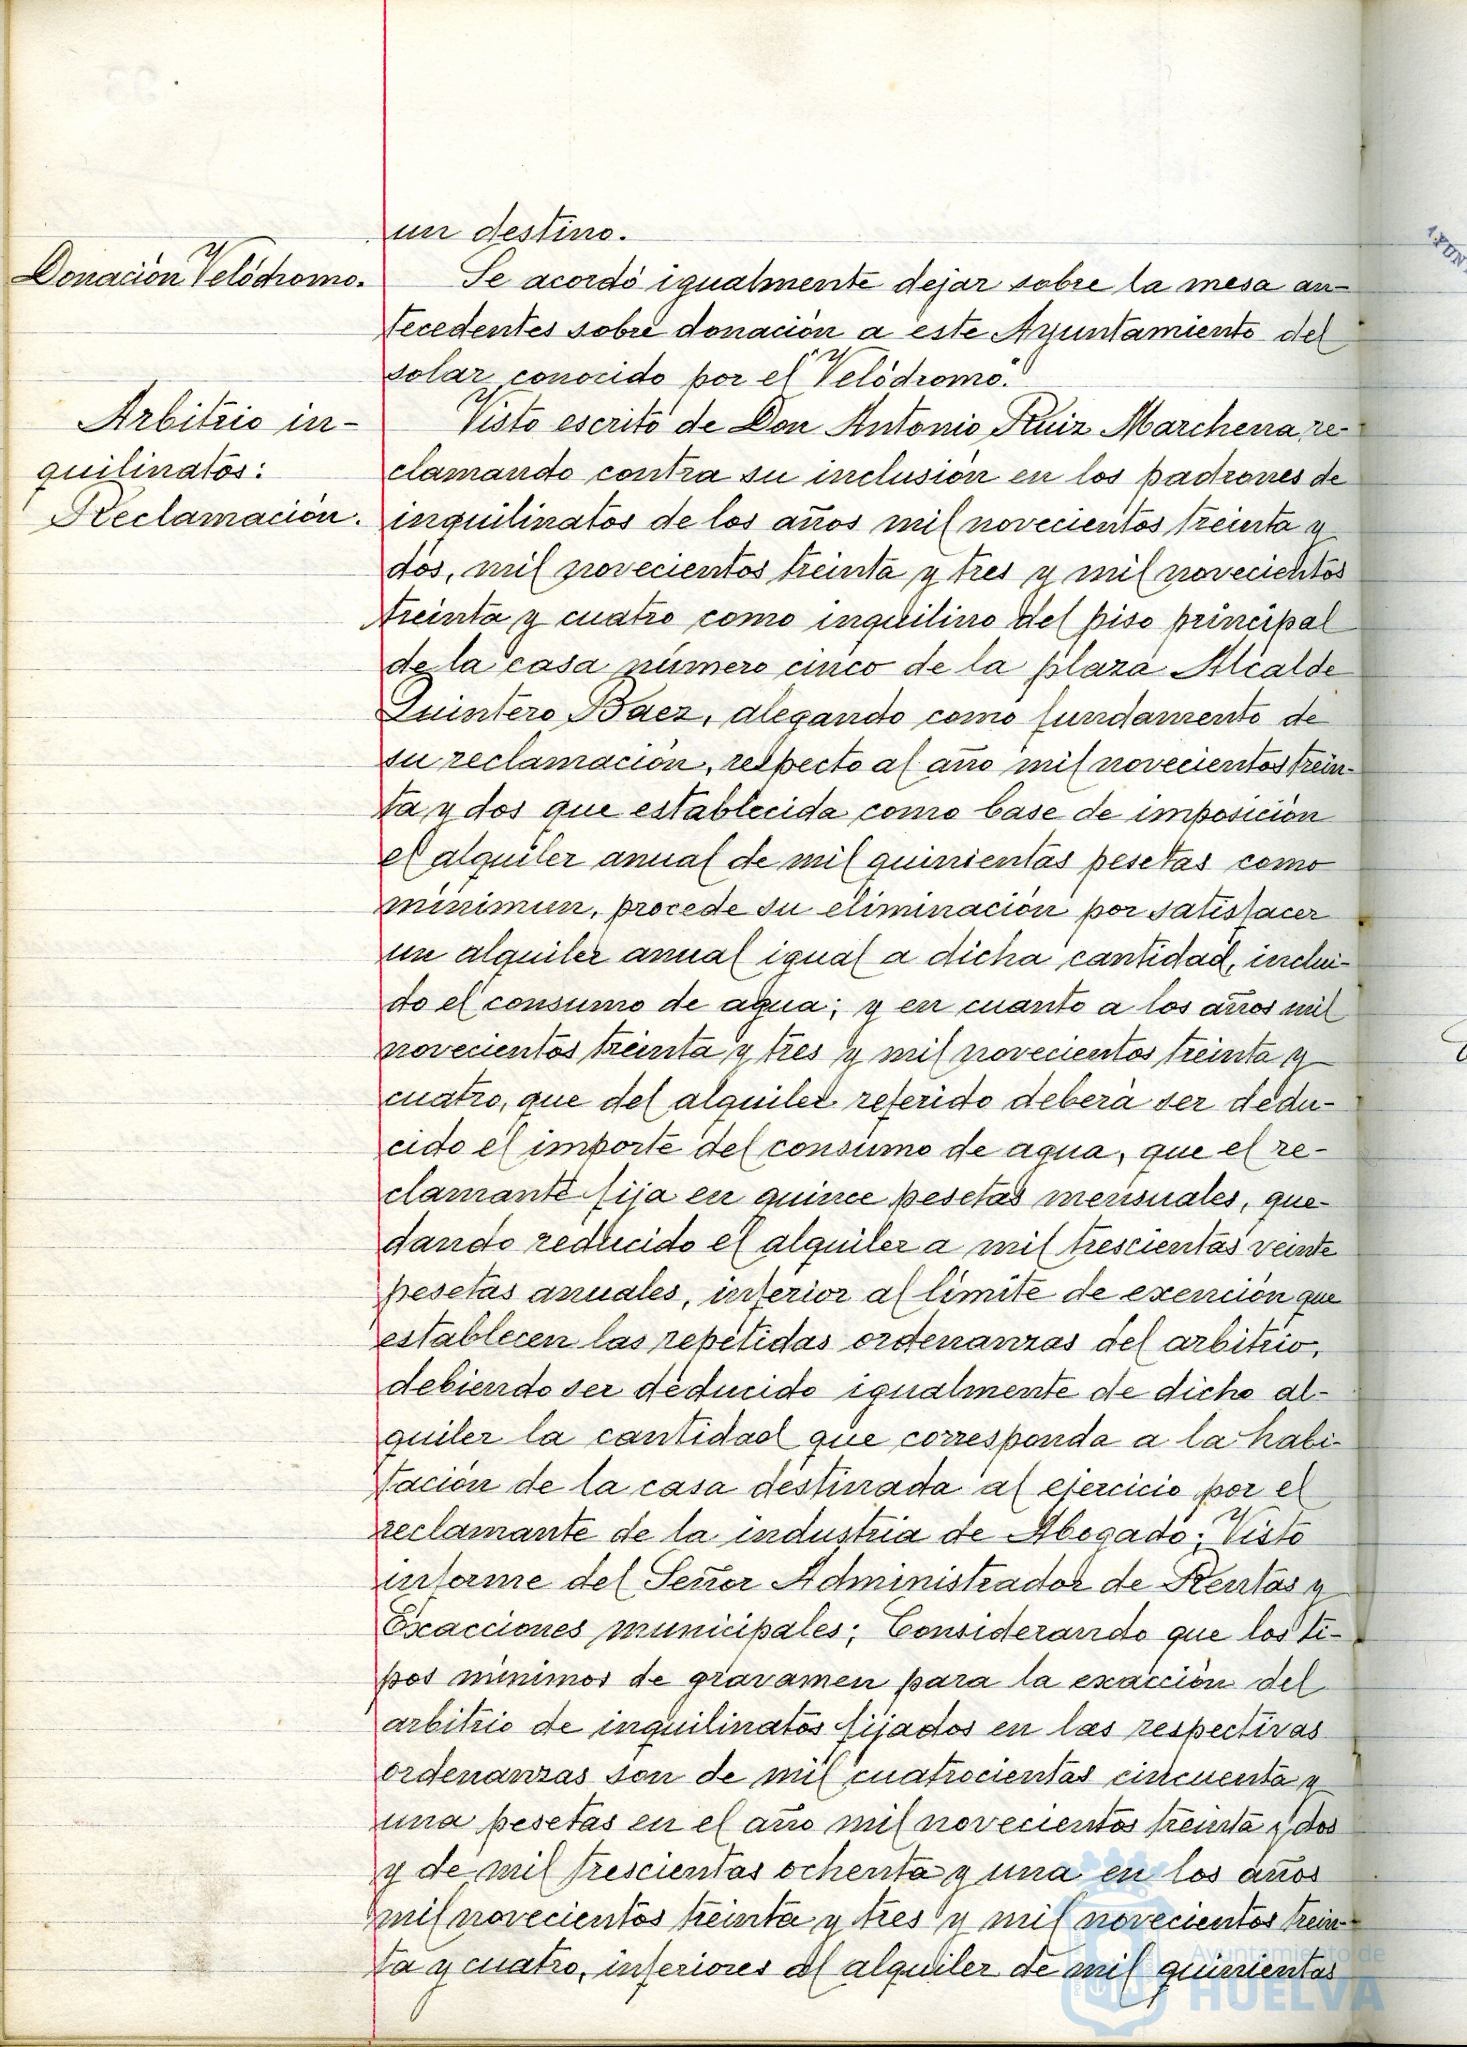 un destino.
Donación Velódromo.
Se acordó igualmente dejar sobre la mesa an-
tecedentes sobre donación a este Ayuntamiento del
solar conocido por el "Velódromo".
Arbitrio in-
quilinatos:
Reclamación.
Visto escrito de Don Antonio Ruiz Marchena, re-
clamando contra su inclusión en los padrones de
inquilinatos de los años mil novecientos treinta y
dos, mil novecientos treinta y tres y mil novecientos
treinta y cuatro como inquilino del piso principal
de la casa número cinco de la plaza Alcalde
Quintero Baez, alegando como fundamento de
su reclamación, respecto al año mil novecientos trein-
ta y dos que establecida como base de imposición
el alquiler anual de mil quinientas pesetas como
mínimun, procede su eliminación por satisfacer
un alquiler anual igual a dicha cantidad, inclui-
do el consumo de agua; y en cuanto a los años mil
novecientos treinta y tres y mil novecientos treinta y
cuatro, que del alquiler referido deberá ser dedu-
cido el importe del consumo de agua, que el re-
clamante fija en quince pesetas mensuales, que-
dando reducido el alquiler a mil trescientas veinte
pesetas anuales, inferior al límite de exención que
establecen las repetidas ordenanzas del arbitrio,
debiendo ser deducido igualmente de dicho al-
quiler la cantidad que corresponda a la habi-
tación de la casa destinada al ejercicio por el
reclamante de la industria de Abogado; Visto
informe del Señor Administrador de Rentas y
Exacciones municipales; Considerando que los ti-
pos mínimos de gravamen para la exacción del
arbitrio de inquilinatos fijados en las respectivas
ordenanzas son de mil cuatrocientas cincuenta y
una pesetas en el año mil novecientos treinta y dos
y de mil trescientas ochenta y una en los años
mil novecientos treinta y tres y mil novecientos trein-
ta y cuatro, inferiores al alquiler de mil quinientas
Ayuntamiento de
HUELVA